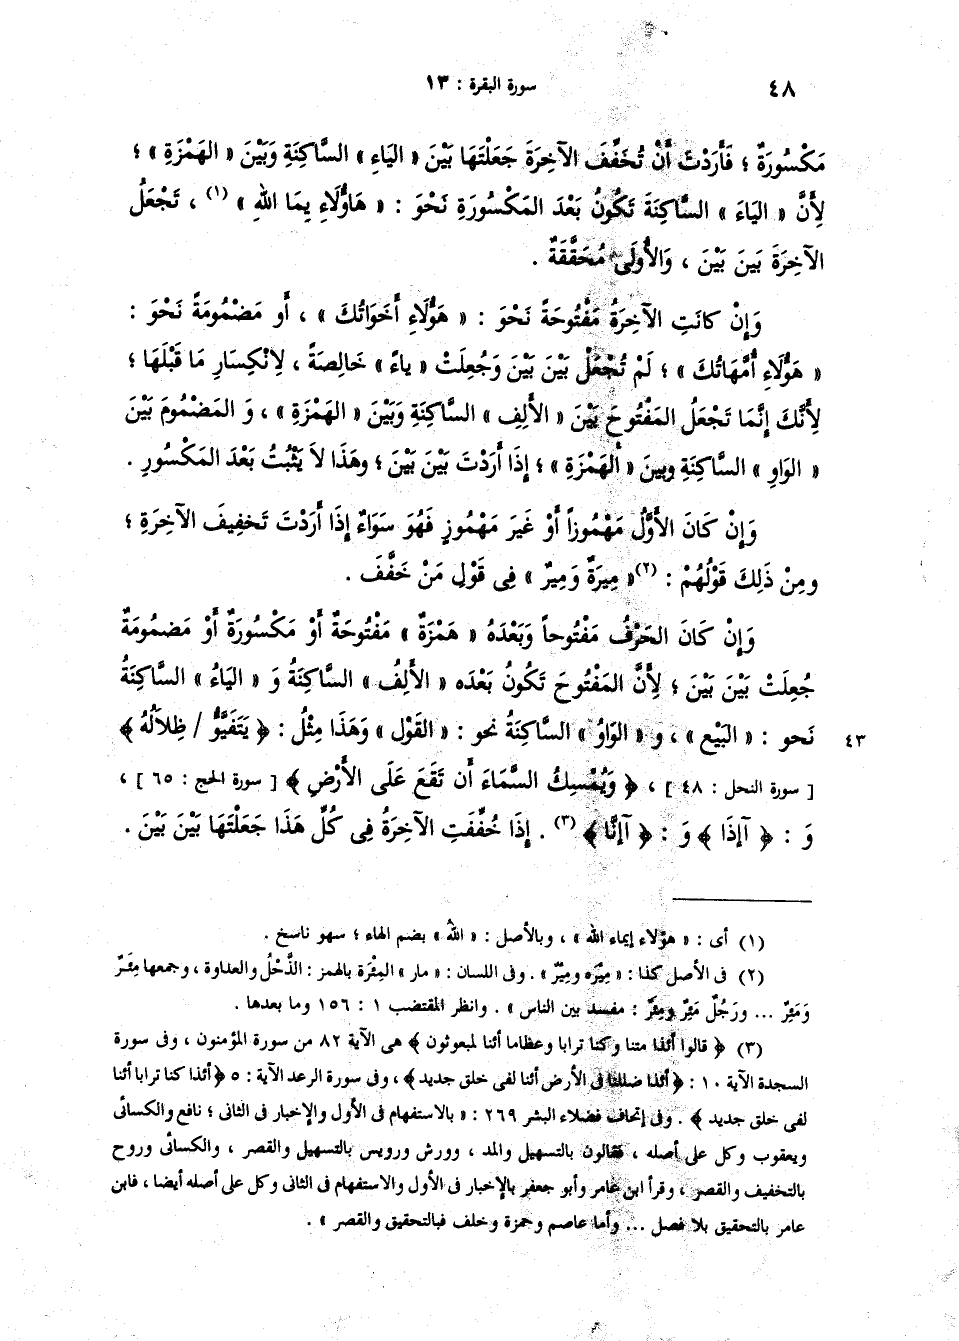 ٤٨
سورة البقرة : ١٣
مَكْسُورَةٌ ؛ فَأَرَدْتَ أَنْ تُخَفِّفَ الآخِرَةَ جَعَلْتَهَا بَيْنَ « اليَاءِ » السَّاكِنَةِ وَبَيْنَ « الهَمْزَةِ » ؛
لِأَنَّ « اليَاءَ » السَّاكِنَةَ تَكُونُ بَعْدَ المَكْسُورَةِ نَحْوَ : « هَاؤُلَاءِ بِمَا اللهِ » (١) ، تَجْعَلُ
الآخِرَةَ بَينَ بَيْنَ ، وَالأُولَى مُحَقَّقَةٌ .
وَإِنْ كانَتِ الآخِرَةُ مَفْتُوحَةً نَحْوَ : « هَؤُلَاءِ أَخَوَاتُكَ » ، أَو مَضْمُومَةً نَحْوَ :
« هَؤُلَاءِ أُمَّهَاتُكَ » ؛ لَمْ تُجْعَلْ بَيْنَ بَيْنَ وَجُعِلَتْ « ياءً » خَالِصَةً ، لِانْكِسَارِ مَا قَبْلَهَا ؛
لِأَنَّكَ إِنَّمَا تَجْعَلُ المَفْتُوحَ بَيْنَ « الأَلِفِ » السَّاكِنَةِ وَبَيْنَ « الهَمْزَةِ » ، وَ المَضْمُومَ بَيْنَ
« الوَاوِ » السَّاكِنَةِ وبينَ « الهَمْزَةِ » ؛ إِذَا أَرَدْتَ بَيْنَ بَيْنَ ؛ وهَذَا لاَ يَثْبُتُ بَعْدَ المَكْسُورِ .
وَإِنْ كَانَ الأَوَّلُ مَهْمُوزاً أَوْ غَيرَ مَهْمُوزٍ فَهُوَ سَوَاءٌ إِذَا أَرَدْتَ تَخفِيفَ الآخِرَةِ ؛
ومِنْ ذَلِكَ قَوْلُهُمْ : (٢)« مِيرَةٌ وَمِيرٌ » فِى قَوْلِ مَنْ خَفَّفَ .
وَإِنْ كَانَ الحَرْفُ مَفْتُوحاً وَبَعْدَهُ « هَمْزَةٌ » مَفْتُوحَةٌ أَوْ مَكْسُورَةٌ أَوْ مَضمُومَةٌ
جُعِلَتْ بَيْنَ بَيْنَ ؛ لِأَنَّ المَفْتُوحَ تَكُونُ بَعْدَه « الأَلِفُ » السَّاكِنَةُ وَ « اليَاءُ » السَّاكِنَةُ
نَحو : « البَيْع » ، و « الوَاوُ » السَّاكِنَةُ نحو : « القَوْل » وَهَذَا مِثْلُ : ﴿ يَتَفَيَّؤُ / ظِلاَلُهُ ﴾
٤٣
[ سورة النحل : ٤٨ ] ، ﴿ وَيُمْسِكُ السَّمَاءَ أَن تَقَعَ عَلَى الأَرْضِ ﴾ [ سورة الحج : ٦٥ ] ،
وَ : ﴿ آإِذَا ﴾ وَ : ﴿ آإِنَّا ﴾ (٣) . إِذَا خُفِّفَتِ الآخِرَةُ فِى كُلِّ هَذَا جَعَلْتَهَا بَيْنَ بَيْنَ .
(١) أى : « هؤلاء إيماء الله » ، وبالأصل : « اللهُ » بضم الهاء ؛ سهو ناسخ .
(٢) فى الأصل كذا : « مِيْرَه ومِيْرٌ » . وفى اللسان : « مار » المِئْرَة بالهمز : الذَّحْلُ والعداوة ، وجمعها مِئَرٌ
وَمَئِرٌ ... ورَجُلٌ مَئِرٌ ومِئَرٌ : مفسد بين الناس » . وانظر المقتضب ١ : ١٥٦ وما بعدها .
(٣) ﴿ قالوا أئذا متنا وكنا ترابا وعظاما أئنا لمبعوثون ﴾ هى الآية ٨٢ من سورة المؤمنون ، وفى سورة
السجدة الآية ١٠ : ﴿ أئذا ضللنا فى الأرض أئنا لفى خلق جديد ﴾ ، وفى سورة الرعد الآية : ٥ ﴿ أئذا كنا ترابا أئنا
لفى خلق جديد ﴾ . وفى إتحاف فضلاء البشر ٢٦٩ : « بالاستفهام فى الأول والإخبار فى الثانى ؛ نافع والكسائى
ويعقوب وكل على أصله ، فقالون بالتسهيل والمد ، وورش ورويس بالتسهيل والقصر ، والكسائى وروح
بالتخفيف والقصر ، وقرأ ابن عامر وأبو جعفر بالإخبار فى الأول والاستفهام فى الثانى وكل على أصله أيضا ، فابن
عامر بالتحقيق بلا فصل ... وأما عاصم وحمزة وخلف فبالتحقيق والقصر » .